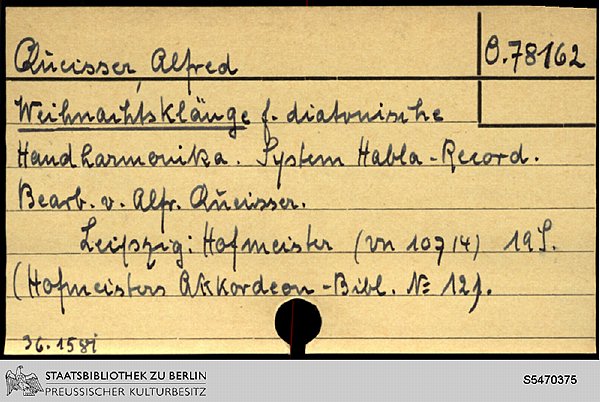 Queisser, Alfred
O.78162
Weihnachtsklänge f. diatonische
Handharmonika. System Habla-Record.
Bearb. v. Alfr. Queisser.
Leipzig: Hofmeister (vn 10714) 19 S.
(Hofmeisters Akkordeon-Bibl. No 12).
36.158i
STAATSBIBLIOTHEK ZU BERLIN
PREUSSISCHER KULTURBESITZ
S5470375